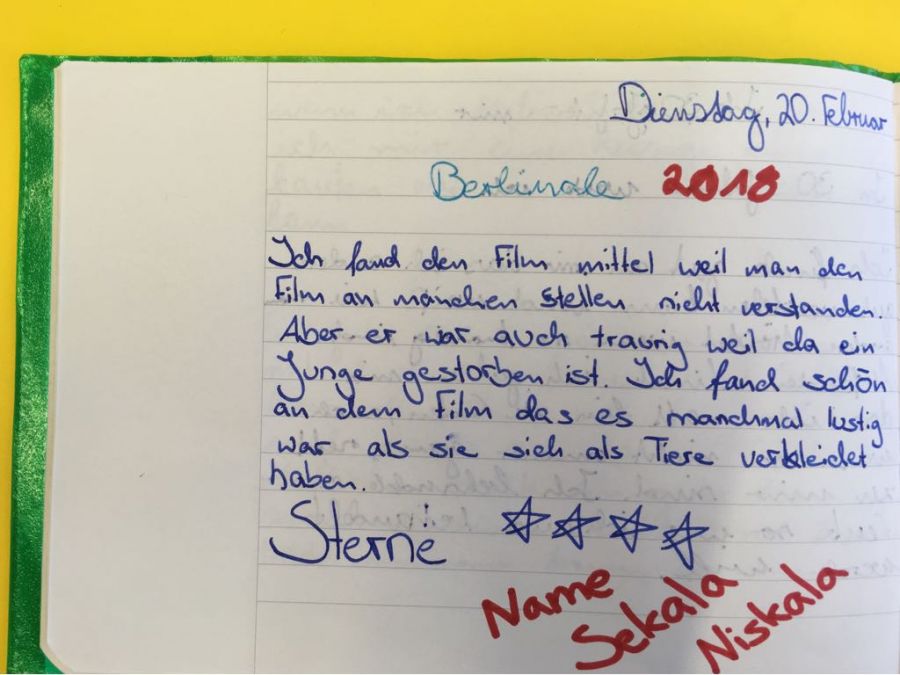 Dienstag, 20. Februar
Berlinale 2018
Ich fand den Film mittel weil man den
Film an manchen stellen nicht verstanden.
Aber er war auch traurig weil da ein
Junge gestorben ist. Ich fand schön
an dem Film das es manchmal lustig
war als sie sich als Tiere verkleidet
haben.
Sterne ☆☆☆☆
Name
Sekala
Niskala